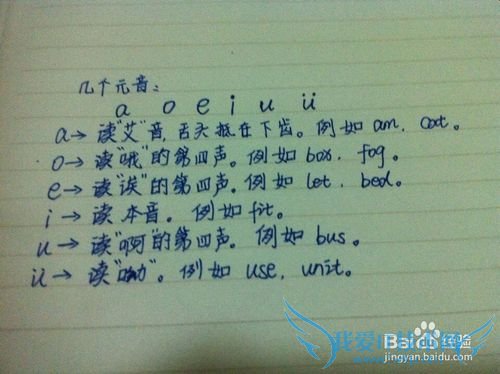 几个元音:
a o e i u ü
a→ 读"艾"音,舌头抵在下齿。例如 am, cat。
o→ 读"哦"的第四声。例如 box, fog。
e→ 读"诶"的第四声。例如 let, bed。
i→ 读本音。例如 fit。
u→ 读"啊"的第四声。例如 bus。
ü→ 读"呦"。例如 use, unit。
Baidu经验
jingyan.baidu.com